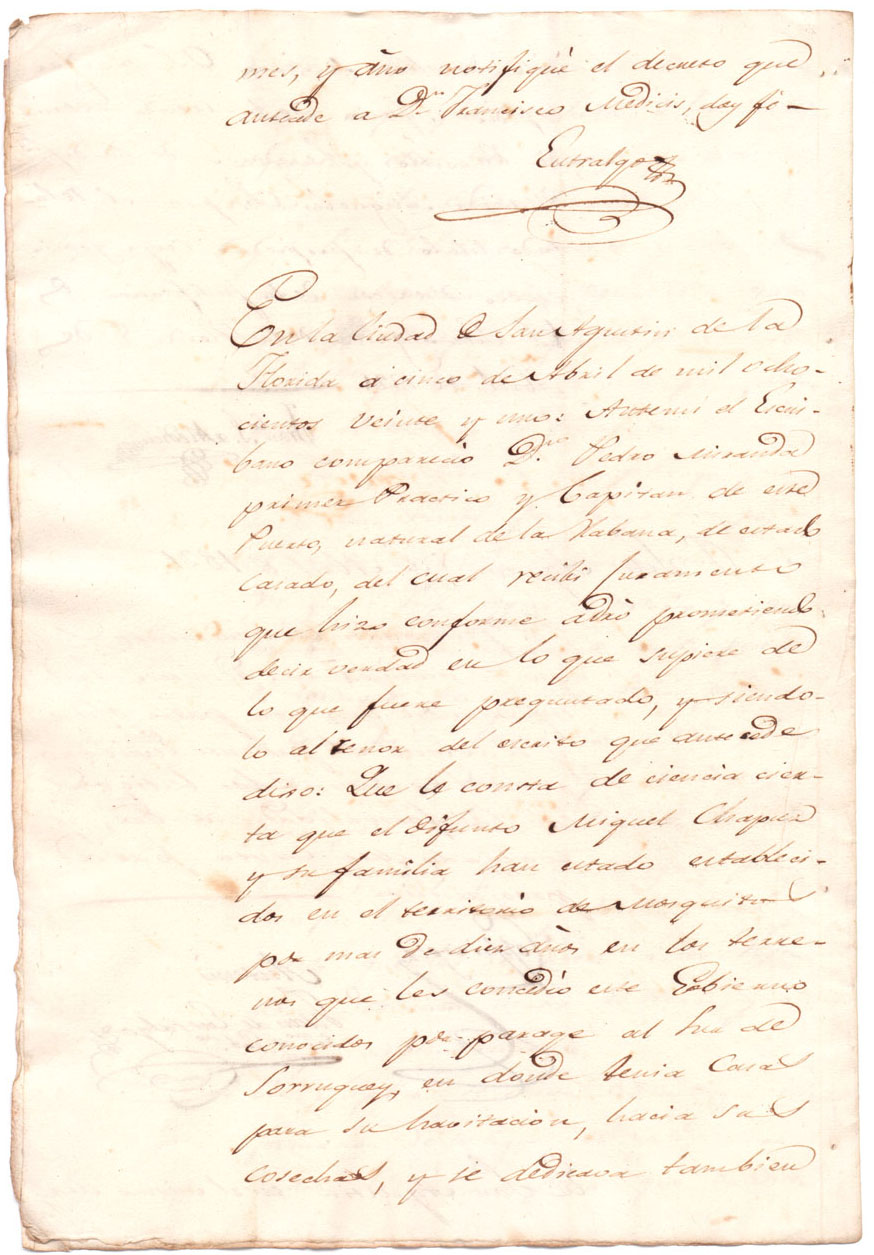 mes, y año notifiqué el decreto que
antecede a D.n Francisco Medicis, doy fé—
Entralgo
En la Ciudad de San Agustin de la
Florida a cinco de Abril de mil ocho-
cientos veinte y uno: Antemi el Escri-
bano comparecio D.n Pedro Miranda
primer Practico y Capitan de este
Puerto, natural de la Habana, de estado
casado, del cual recibi juramento
que hizo conforme a dro prometiendo
decir verdad en lo que supiere de
lo que fuere preguntado, y siendo-
lo al tenor del escrito que antecede
dixo: Que le consta de ciencia cier-
ta que el difunto Miguel Chapuz
y su familia han estado estableci-
dos en el territorio de Mosquitos
por mas de diez años en los terre-
nos que les concedió este Gobierno
conocidos por parage al Sur de
Sorruquey, en donde tenia Casas
para su havitacion, hacia sus
cosechas, y se dedicava tambien